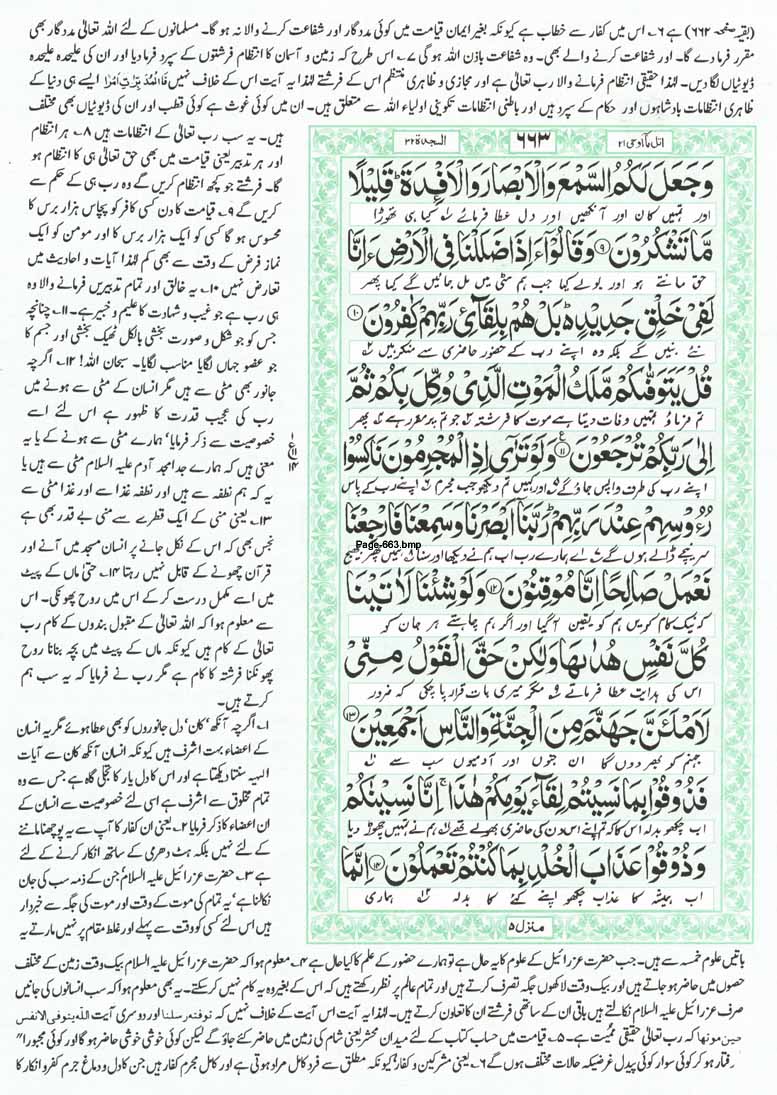 (بقیہ صفحہ ۶۶۲) ہے ۶۔ اس میں کفار سے خطاب ہے کیونکہ بغیر ایمان قیامت میں کوئی مددگار اور شفاعت کرنے والا نہ ہو گا۔ مسلمانوں کے لئے اللہ تعالیٰ مددگار بھی
مقرر فرما دے گا۔ اور شفاعت کرنے والے بھی۔ وہ شفاعت باذن اللہ ہو گی ۷۔ اس طرح کہ زمین و آسمان کا انتظام فرشتوں کے سپرد فرما دیا اور ان کی علیحدہ علیحدہ
ڈیوٹیاں لگا دیں۔ لہٰذا حقیقی انتظام فرمانے والا رب تعالیٰ ہے اور مجازی و ظاہری منتظم اس کے فرشتے لہٰذا یہ آیت اس کے خلاف نہیں فَالْمُدَبِّرٰتِ اَمْرًا ایسے ہی دنیا کے
ظاہری انتظامات بادشاہوں اور حکام کے سپرد ہیں اور باطنی انتظامات تکوینی اولیاء اللہ سے متعلق ہیں۔ ان میں کوئی غوث ہے کوئی قطب اور ان کی ڈیوٹیاں بھی مختلف
اتل مآ اوحی ۲۱
۶۶۳
السجدة ۳۲
وَجَعَلَ لَكُمُ السَّمْعَ وَالْاَبْصَارَ وَالْاَفْـِٕدَةَ ؕ قَلِیْلًا
اور تمہیں کان اور آنکھیں اور دل عطا فرمائے کیا ہی تھوڑا
مَّا تَشْكُرُوْنَ ﴿۹﴾ وَقَالُوْۤا ءَاِذَا ضَلَلْنَا فِی الْاَرْضِ ءَاِنَّا
حق مانتے ہو اور بولے کیا جب ہم مٹی میں مل جائیں گے کیا پھر
لَفِیْ خَلْقٍ جَدِیْدٍ ؕ بَلْ هُمْ بِلِقَآئِ رَبِّهِمْ كٰفِرُوْنَ ﴿۱۰﴾
نئے بنیں گے بلکہ وہ اپنے رب کے حضور حاضری سے منکر ہیں
قُلْ یَتَوَفّٰىكُمْ مَّلَكُ الْمَوْتِ الَّذِیْ وُكِّلَ بِكُمْ ثُمَّ
تم فرماؤ تمہیں وفات دیتا ہے موت کا فرشتہ جو تم پر مقرر ہے پھر
اِلٰی رَبِّكُمْ تُرْجَعُوْنَ ﴿۱۱﴾ وَلَوْ تَرٰۤی اِذِ الْمُجْرِمُوْنَ نَاكِسُوْا
اپنے رب کی طرف واپس جاؤ گے اور کہیں تم دیکھو جب مجرم اپنے رب کے پاس
رُءُوْسِهِمْ عِنْدَ رَبِّهِمْ ؕ رَبَّنَاۤ اَبْصَرْنَا وَسَمِعْنَا فَارْجِعْنَا
Page-663.bmp
سر نیچے ڈالے ہوں گے اے ہمارے رب اب ہم نے دیکھا اور سنا ہمیں پھر بھیج
نَعْمَلْ صَالِحًا اِنَّا مُوْقِنُوْنَ ﴿۱۲﴾ وَلَوْ شِئْنَا لَاٰتَیْنَا
کہ نیک کام کریں ہم کو یقین آ گیا اور اگر ہم چاہتے ہر جان کو
كُلَّ نَفْسٍ هُدٰىهَا وَلٰكِنْ حَقَّ الْقَوْلُ مِنِّیْ
اس کی ہدایت عطا فرماتے مگر میری بات قرار پا چکی کہ ضرور
لَاَمْلَـَٔنَّ جَهَنَّمَ مِنَ الْجِنَّةِ وَالنَّاسِ اَجْمَعِیْنَ ﴿۱۳﴾
جہنم کو بھر دوں گا ان جنوں اور آدمیوں سب سے
فَذُوْقُوْا بِمَا نَسِیْتُمْ لِقَآءَ یَوْمِكُمْ هٰذَا ۚ اِنَّا نَسِیْنٰكُمْ
اب چکھو بدلہ اس کا کہ تم اپنے اس دن کی حاضری بھولے تھے ہم نے تمہیں چھوڑ دیا
وَذُوْقُوْا عَذَابَ الْخُلْدِ بِمَا كُنْتُمْ تَعْمَلُوْنَ ﴿۱۴﴾ اِنَّمَا
اب ہمیشہ کا عذاب چکھو اپنے کئے کا بدلہ ہماری
منزل ۵
ع ۱۱ ۱۴
ہیں۔ یہ سب رب تعالیٰ کے انتظامات ہیں ۸۔ ہر انتظام
اور ہر تدبیر یعنی قیامت میں بھی حق تعالیٰ ہی کا انتظام ہو
گا۔ فرشتے جو کچھ انتظام کریں گے وہ رب ہی کے حکم سے
کریں گے ۹۔ قیامت کا دن کسی کافر کو پچاس ہزار برس کا
محسوس ہو گا کسی کو ایک ہزار برس کا اور مومن کو ایک
نماز فرض کے وقت سے بھی کم لہٰذا آیات و احادیث میں
تعارض نہیں ۱۰۔ یہ خالق اور تمام تدبیریں فرمانے والا وہ
ہی رب ہے جو غیب و شہادت کا علیم و خبیر ہے۔ ۱۱۔ چنانچہ
جس کو جو شکل و صورت بخشی بالکل ٹھیک بخشی اور جسم کا
جو عضو جہاں لگایا مناسب لگایا۔ سبحان اللہ! ۱۲۔ اگرچہ
جانور بھی مٹی سے ہیں مگر انسان کے مٹی سے ہونے میں
رب کی عجیب قدرت کا ظہور ہے اس لئے اسے
خصوصیت سے ذکر فرمایا' ہمارے مٹی سے ہونے کے یا یہ
معنی ہیں کہ ہمارے جد امجد آدم علیہ السلام مٹی سے ہیں یا
یہ کہ ہم نطفہ سے ہیں اور نطفہ غذا سے اور غذا مٹی سے
۱۳۔ یعنی منی کے ایک قطرے سے منی بے قدر بھی ہے
نجس بھی کہ اس کے نکل جانے پر انسان مسجد میں آنے اور
قرآن چھونے کے قابل نہیں رہتا ۱۴۔ حتیٰ ماں کے پیٹ
میں اسے مکمل درست کر کے اس میں روح پھونکی۔ اس
سے معلوم ہوا کہ اللہ تعالیٰ کے مقبول بندوں کے کام رب
تعالیٰ کے کام ہیں کیونکہ ماں کے پیٹ میں بچہ بنانا روح
پھونکنا فرشتہ کا کام ہے مگر رب نے فرمایا کہ یہ سب ہم
کرتے ہیں۔
۱۔ اگرچہ آنکھ' کان' دل جانوروں کو بھی عطا ہوئے مگر یہ انسان
کے اعضاء بہت اشرف ہیں کیونکہ انسان آنکھ کان سے آیات
الٰہیہ سنتا دیکھتا ہے اور اس کا دل یار کا تجلی گاہ ہے جس سے وہ
تمام مخلوق سے اشرف ہے اسی لئے خصوصیت سے انسان کے
ان اعضاء کا ذکر فرمایا ۲۔ یعنی ان کفار کا آپ سے یہ پوچھنا ماننے
کے لئے نہیں بلکہ ہٹ دھرمی کے ساتھ انکار کرنے کے لئے
ہے ۳۔ حضرت عزرائیل علیہ السلام' جن کے ذمہ سب کی جان
نکالنا ہے' یہ تمام کی موت کے وقت اور موت کی جگہ سے خبردار
ہیں اس لئے کسی کو وقت سے پہلے اور غلط مقام پر نہیں مارتے یہ
باتیں علوم خمسہ سے ہیں۔ جب حضرت عزرائیل کے علوم کا یہ حال ہے تو ہمارے حضور کے علم کا کیا حال ہے ۴۔ معلوم ہوا کہ حضرت عزرائیل علیہ السلام بیک وقت زمین کے مختلف
حصوں میں حاضر ہو جاتے ہیں اور بیک وقت لاکھوں جگہ تصرف کرتے ہیں اور تمام عالم پر نظر رکھتے ہیں کہ اس کے بغیر وہ یہ کام نہیں کر سکتے۔ یہ بھی معلوم ہوا کہ سب انسانوں کی جانیں
صرف عزرائیل علیہ السلام نکالتے ہیں باقی ان کے ساتھی فرشتے ان کا تعاون کرتے ہیں۔ لہٰذا یہ آیت اس آیت کے خلاف نہیں کہ توفته رسلنا اور دوسری آیت اللہ یتوفی الانفس
حین موتھا کہ رب تعالیٰ حقیقی ممیت ہے۔ ۵۔ قیامت میں حساب کتاب کے لئے میدان محشر یعنی شام کی زمین میں حاضر کئے جاؤ گے لیکن کوئی خوشی خوشی حاضر ہو گا اور کوئی مجبوراً"
رفتار ہو کر کوئی سوار کوئی پیدل غرضیکہ حالات مختلف ہوں گے ۶۔ یعنی مشرکین و کفار' کیونکہ مطلق سے فرد کامل مراد ہوتی ہے اور کامل مجرم کفار ہیں جن کا دل و دماغ جرم کفر و انکار کا